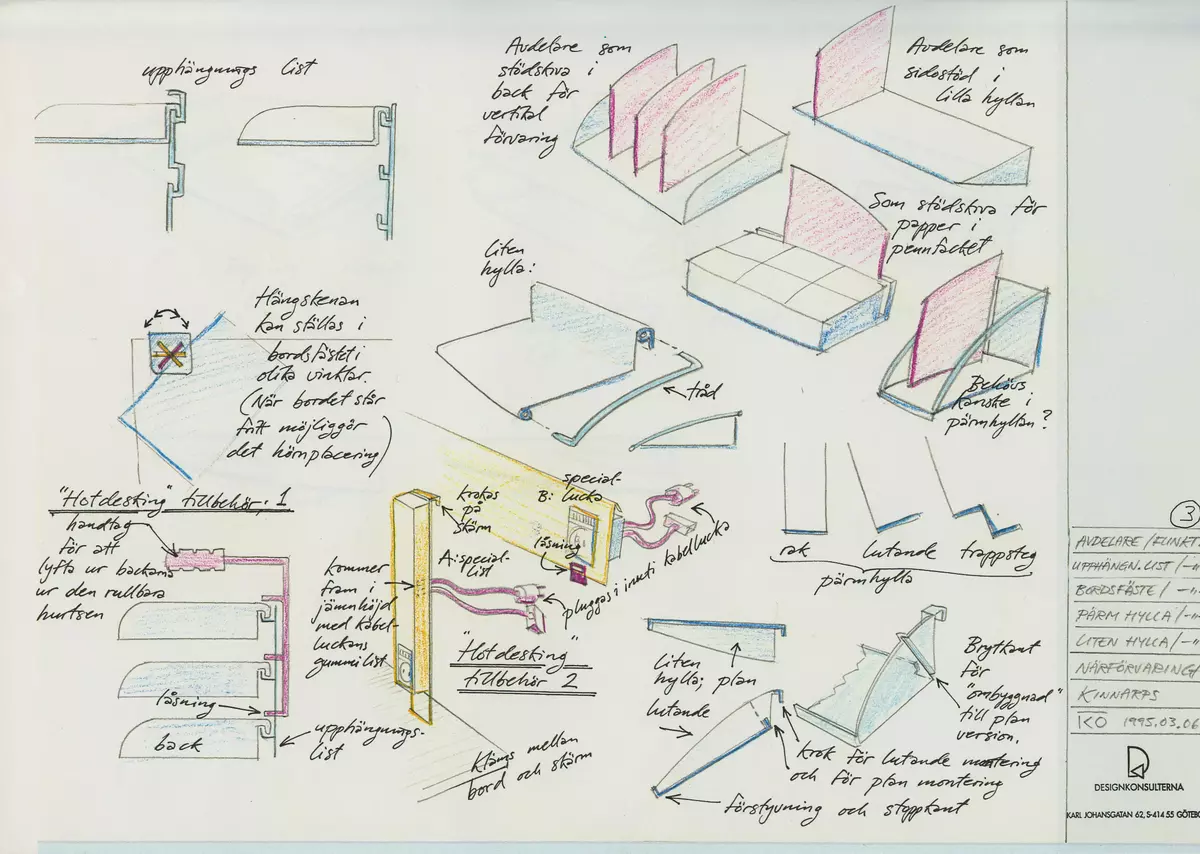 upphängnings list
Avdelare som
stödskiva i
back för
vertikal
förvaring
Avdelare som
sidostöd i
lilla hyllan
Som stödskiva för
papper i
pennfacket
Liten
hylla:
tråd
Behövs
kanske i
pärmhyllan?
Hängskenan
kan ställas i
bordsfästet i
olika vinklar.
(När bordet står
fritt möjliggör
det hörnplacering)
"Hotdesking" tillbehör; 1
handtag
för att
lyfta ur backarna
ur den rullbara
hurtsen
låsning
back
upphängnings-
list
krokas
på
skärm
A: special-
list
kommer
fram i
jämnhöjd
med kabel-
luckans
gummilist
special-
B: lucka
låsning
pluggas i inuti kabellucka
"Hotdesking"
tillbehör 2
Kläms mellan
bord och skärm
rak
lutande
trappsteg
pärmhylla
Liten
hylla; plan
lutande
Brytkant
för
"ombyggnad"
till plan
version.
krok för lutande montering
och för plan montering
förstyvning och stoppkant
3
AVDELARE/FUNKT.
UPPHÄNGN.LIST/-"-
BORDSFÄSTE/-"-
PÄRM HYLLA/-"-
LITEN HYLLA/-"-
NÄRFÖRVARING
KINNARPS
KO 1995.03.06
DESIGNKONSULTERNA
KARL JOHANSGATAN 62, S-414 55 GÖTEBO